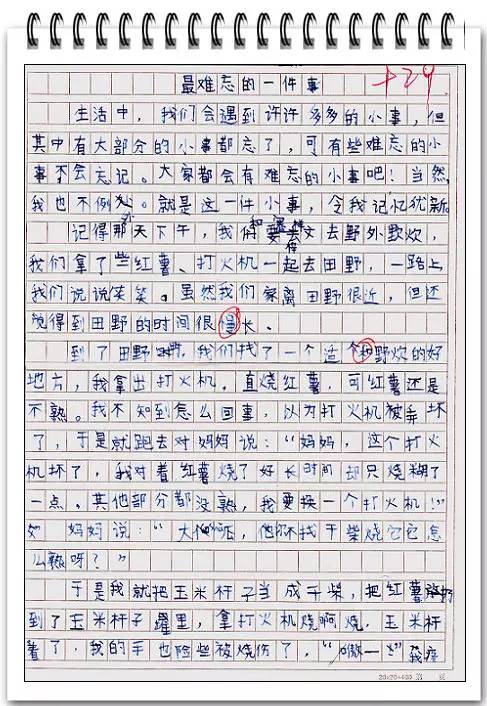 最难忘的一件事
+29
生活中，我们会遇到许许多多的小事，但
其中有大部分的小事都忘了，可有些难忘的小
事不会忘记。大家都会有难忘的小事吧！当然，
我也不例外。就是这一件小事，令我记忆犹新
记得那天下午，我和 去野外野炊，
我们拿了些红薯、打火机一起去田野，一路上
我们说说笑笑。虽然我们家离田野很近，但还
觉得到田野的时间很慢长、
到了田野时，我们找了一个适和野炊的好
地方，我拿出打火机，直烧红薯，可红薯还是
不熟。我不知到怎么回事，以为打火机被弄坏
了，于是就跑去对妈妈说：“妈妈，这个打火
机坏了，我对着红薯烧了好长时间却只烧糊了
一点。其他部分都没熟，我要换一个打火机！”
妈妈说：“大 ，他不找干柴烧它它怎
么熟呀？”
于是我就把玉米杆子当成干柴，把红薯
到了玉米杆子 里，拿打火机烧啊烧，玉米杆
着了，我的手也险些被烧伤了，“ 一 ”我
20×20=400 第 页